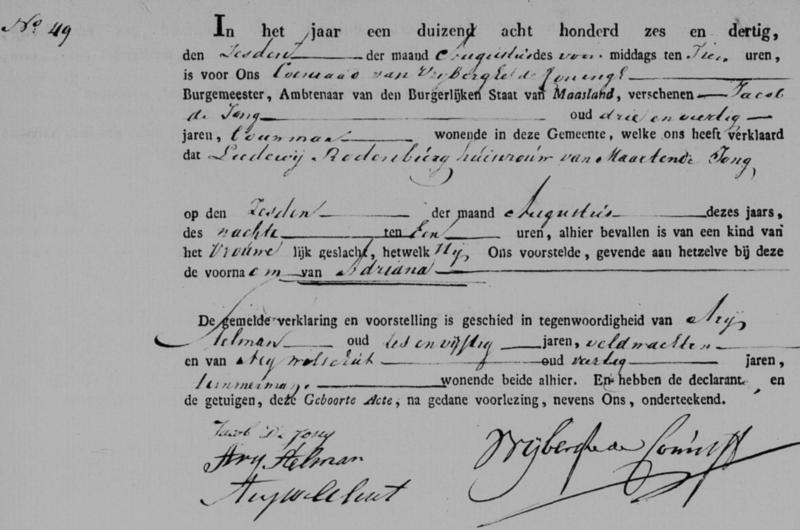 No 49
In het jaar een duizend acht honderd zes en dertig,
den Zesden der maand Augustus des voor middags ten Tien uren,
is voor Ons van
Burgemeester, Ambtenaar van den Burgerlijken Staat van Maasland, verschenen Jacob
de Jong oud drie en veertig
jaren, bouwman wonende in deze Gemeente, welke ons heeft verklaard
dat Ludewij Rodenburg huisvrouw van Maarten de Jong
op den Zesden der maand Augustus dezes jaars,
des nachts ten Een uren, alhier bevallen is van een kind van
het Vrouwe lijk geslacht, hetwelk Hij Ons voorstelde, gevende aan hetzelve bij deze
de voorna em van Adriana
De gemelde verklaring en voorstelling is geschied in tegenwoordigheid van Arij
Helman oud zes en vijftig jaren, veldwachter
en van Arij oud veertig jaren,
timmerman, wonende beide alhier. En hebben de declarant en
de getuigen, deze Geboorte Acte, na gedane voorlezing, nevens Ons, onderteekend.
Jacob De Jong
Arij Helman
Arij